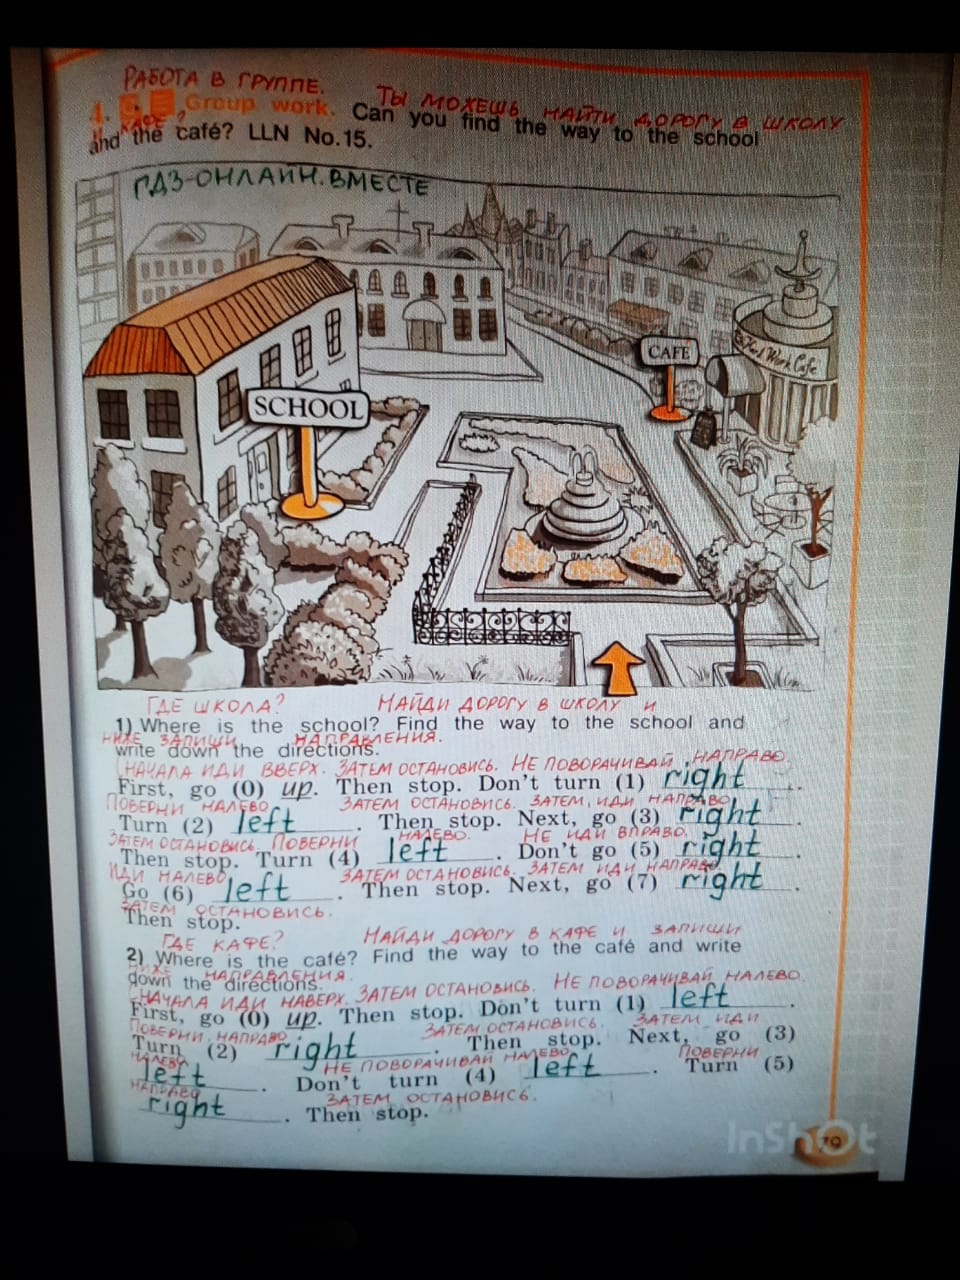 РАБОТА В ГРУППЕ.
4. Group work. Can you find the way to the school
ТЫ МОЖЕШЬ НАЙТИ ДОРОГУ В ШКОЛУ
and the café? LLN No. 15.
ГДЗ-ОНЛАЙН.ВМЕСТЕ
CAFE
Hard Work Cafe
SCHOOL
ГДЕ ШКОЛА? НАЙДИ ДОРОГУ В ШКОЛУ И
1) Where is the school? Find the way to the school and
НИЖЕ ЗАПИШИ НАПРАВЛЕНИЯ.
write down the directions.
СНАЧАЛА ИДИ ВВЕРХ. ЗАТЕМ ОСТАНОВИСЬ. НЕ ПОВОРАЧИВАЙ НАПРАВО.
First, go (0) up. Then stop. Don't turn (1) right.
ПОВЕРНИ НАЛЕВО. ЗАТЕМ ОСТАНОВИСЬ. ЗАТЕМ, ИДИ НАПРАВО
Turn (2) left. Then stop. Next, go (3) right.
ЗАТЕМ ОСТАНОВИСЬ. ПОВЕРНИ НАЛЕВО. НЕ ИДИ ВПРАВО.
Then stop. Turn (4) left. Don't go (5) right.
ИДИ НАЛЕВО ЗАТЕМ ОСТАНОВИСЬ. ЗАТЕМ ИДИ НАПРАВО.
Go (6) left. Then stop. Next, go (7) right.
ЗАТЕМ ОСТАНОВИСЬ.
Then stop.
ГДЕ КАФЕ? НАЙДИ ДОРОГУ В КАФЕ И ЗАПИШИ
2) Where is the café? Find the way to the café and write
НИЖЕ НАПРАВЛЕНИЯ.
down the directions.
СНАЧАЛА ИДИ НАВЕРХ. ЗАТЕМ ОСТАНОВИСЬ. НЕ ПОВОРАЧИВАЙ НАЛЕВО.
First, go (0) up. Then stop. Don't turn (1) left.
ПОВЕРНИ НАПРАВО ЗАТЕМ ОСТАНОВИСЬ. ЗАТЕМ ИДИ
Turn (2) right. Then stop. Next, go (3)
НАЛЕВО НЕ ПОВОРАЧИВАЙ НАЛЕВО ПОВЕРНИ
left. Don't turn (4) left. Turn (5)
НАПРАВО ЗАТЕМ ОСТАНОВИСЬ.
right. Then stop.
InShOt
79